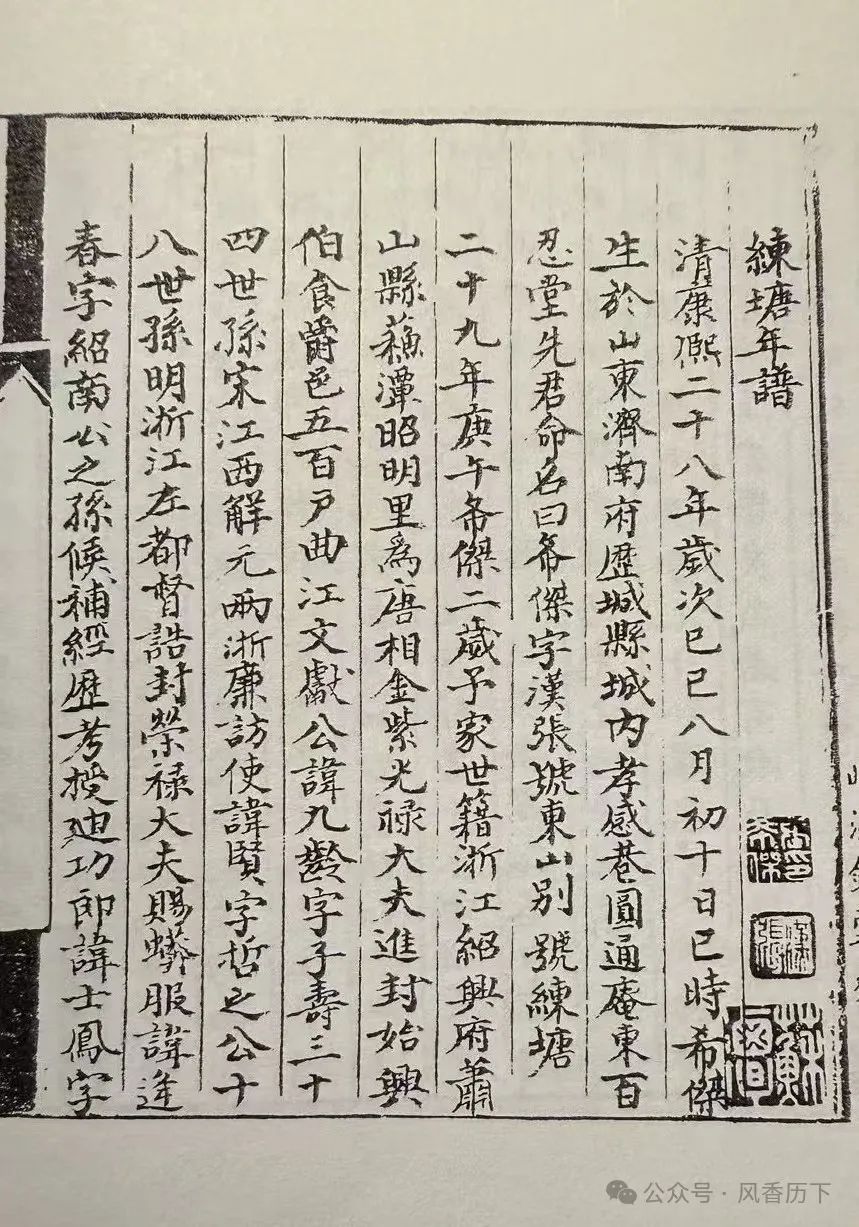 練塘年譜
清康熙二十八年歲次己巳八月初十日巳時希傑
生於山東濟南府歷城縣城内孝感巷圓通庵東百
忍堂先君命名曰希傑字漢張號東山別號練塘
二十九年庚午希傑二歲予家世籍浙江紹興府蕭
山縣蘓潭昭明里為唐相金紫光祿大夫進封始興
伯食爵邑五百户曲江文獻公諱九齡字子壽三十
四世孫宋江西解元兩浙廉訪使諱賢字哲之公十
八世孫明浙江左都督誥封榮祿大夫賜蟒服諱逢
春字紹南公之孫候補經歷考授廸功郎諱士鳳字
公众号·风香历下